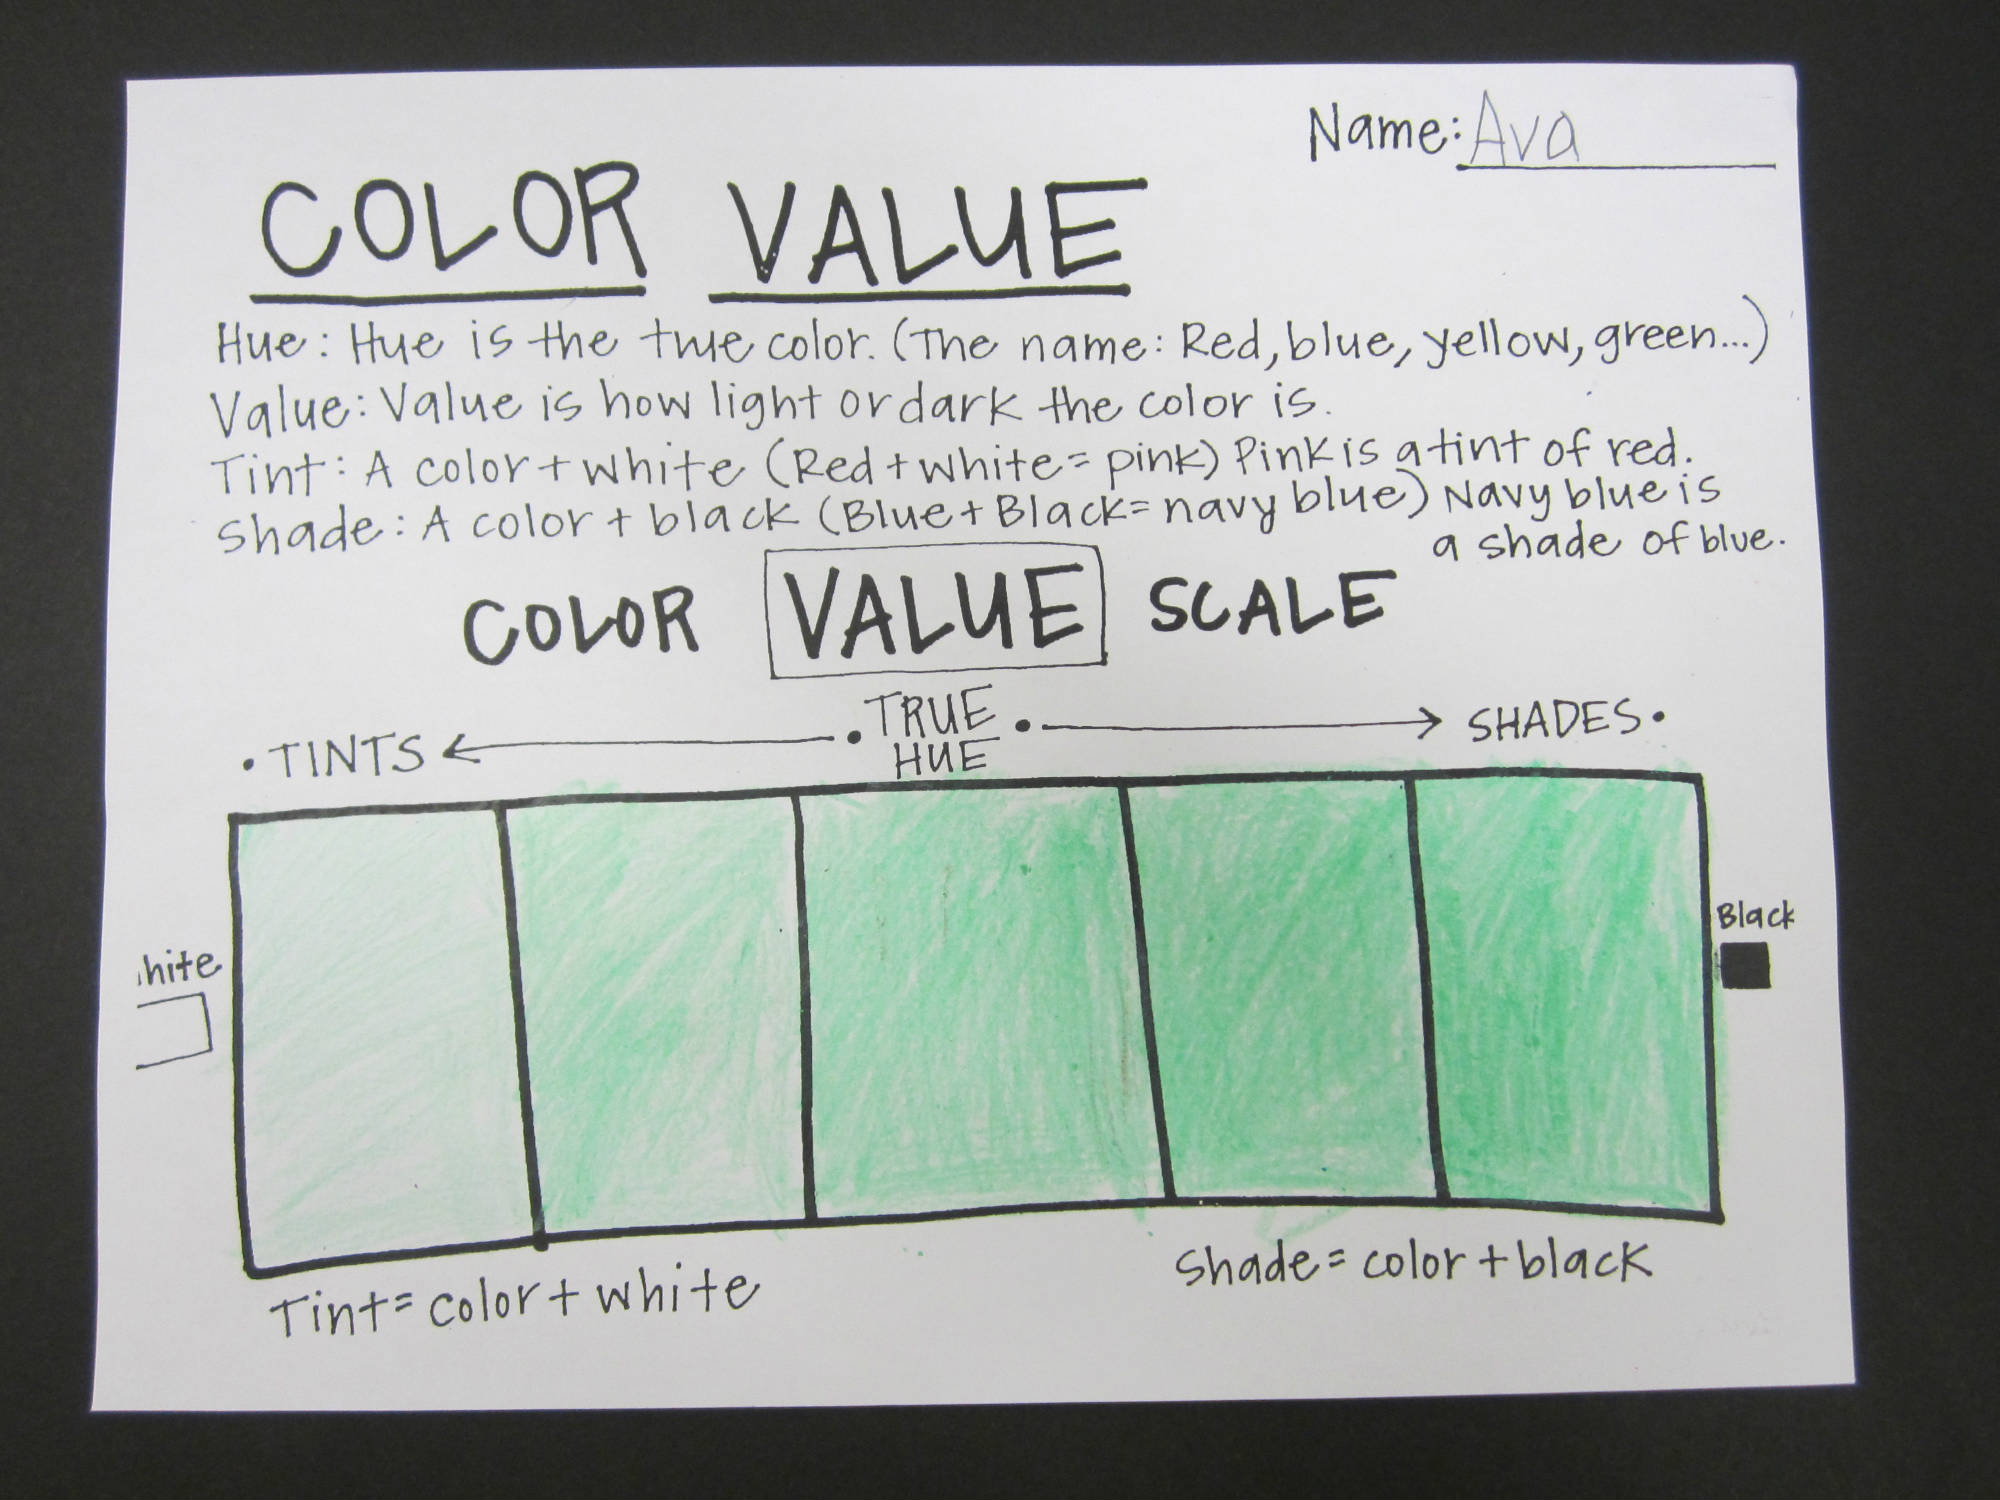 Name: Ava
COLOR VALUE
Hue: Hue is the true color. (The name: Red, blue, yellow, green...)
Value: Value is how light or dark the color is.
Tint: A color + white (Red + white = pink) Pink is a tint of red.
Shade: A color + black (Blue + Black = navy blue) Navy blue is
a shade of blue.
COLOR VALUE SCALE
• TINTS ← • TRUE HUE • → SHADES •
Black
hite
Tint = color + white
Shade = color + black